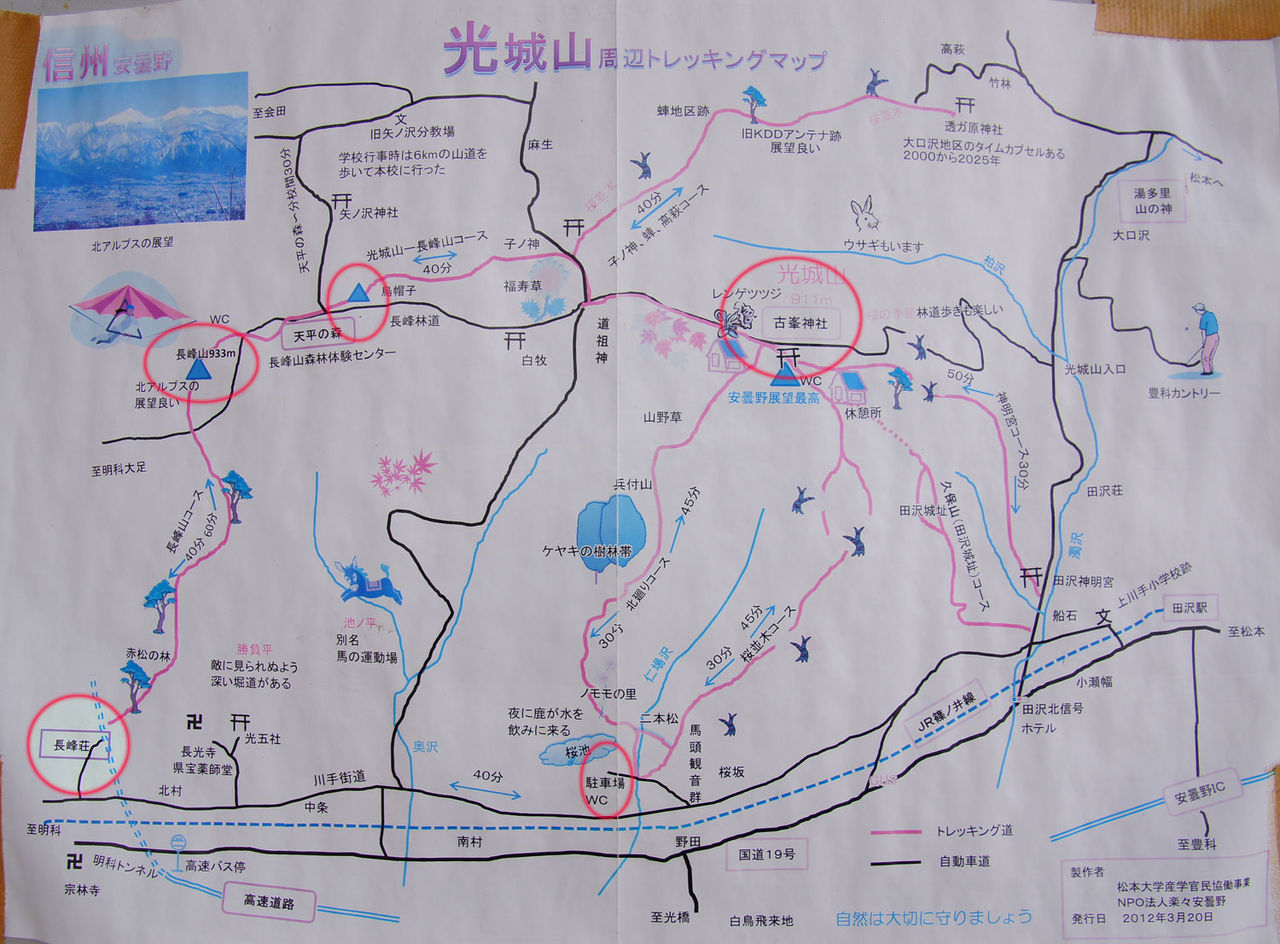 信州 安曇野
光城山 周辺トレッキングマップ
北アルプスの展望
至会田
文
旧矢ノ沢分教場
学校行事時は6kmの山道を
歩いて本校に行った
麻生
天平の森~分校間30分
矢ノ沢神社
光城山ー長峰山コース
40分
子ノ神
烏帽子
福寿草
長峰林道
天平の森
長峰山森林体験センター
白牧
道祖神
WC
長峰山933m
北アルプスの
展望良い
至明科大足
高萩
竹林
蛼地区跡
旧KDDアンテナ跡
展望良い
桜並木
透ガ原神社
大口沢地区のタイムカプセルある
2000から2025年
桜並木
40分
子ノ神、蛼、高萩コース
ウサギもいます
松本へ
湯多里
山の神
大口沢
柏沢
光城山
911m
レンゲツツジ
古峯神社
桜の季節 林道歩きも楽しい
WC
安曇野展望最高
休憩所
50分
神明宮コース30分
光城山入口
豊科カントリー
山野草
兵付山
45分
ケヤキの樹林帯
北廻りコース
30分
田沢城址
久保山(田沢城址)コース
田沢荘
濁沢
田沢神明宮
船石
文
上川手小学校跡
田沢駅
至松本
長峰山コース
40分 60分
赤松の林
勝負平
敵に見られぬよう
深い堀道がある
池ノ平
別名
馬の運動場
45分
30分
桜並木コース
仁場沢
ノモモの里
夜に鹿が水を
飲みに来る
桜池
二本松
馬頭観音群
桜坂
駐車場
WC
小瀬幅
田沢北信号
ホテル
JR篠ノ井線
長峰荘
長光寺
県宝薬師堂
光五社
北村
川手街道
中条
奥沢
40分
至明科
南村
野田
国道19号
安曇野IC
至豊科
明科トンネル
高速バス停
宗林寺
高速道路
至光橋
白鳥飛来地
トレッキング道
自動車道
自然は大切に守りましょう
製作者
松本大学産学官民協働事業
NPO法人楽々安曇野
発行日 2012年3月20日